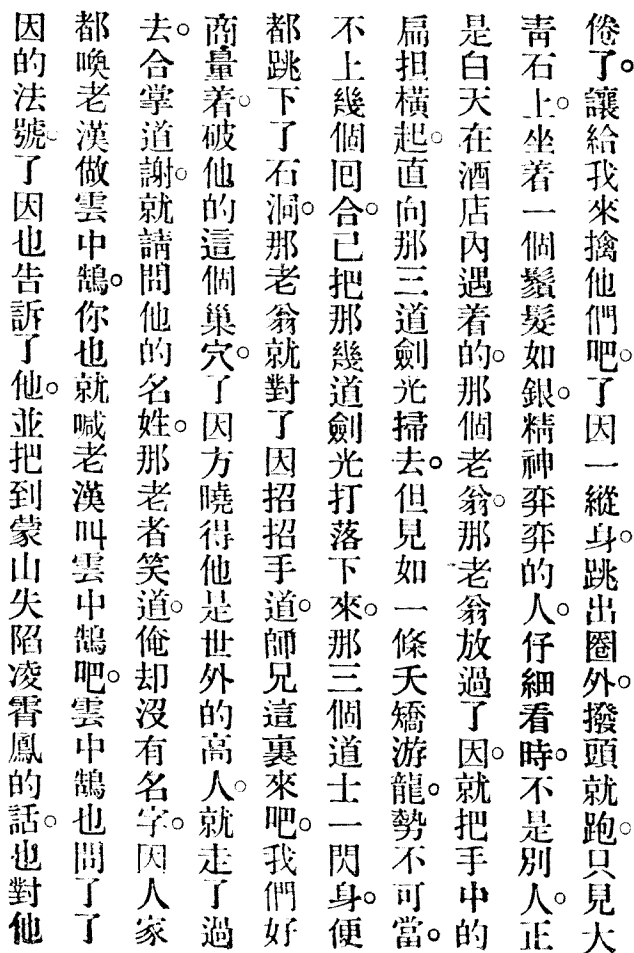 倦了。讓給我來擒他們吧。了因一縱身。跳出圈外。撥頭就跑。只見大
靑石上。坐着一個鬚髮如銀。精神弈弈的人。仔細看時。不是別人。正
是白天在酒店內遇着的。那個老翁。那老翁放過了因。就把手中的
扁担橫起。直向那三道劍光掃去。但見如一條夭矯游龍。勢不可當。
不上幾個囘合。已把那幾道劍光打落下來。那三個道士一閃身。便
都跳下了石洞。那老翁就對了因招招手道。師兄這裏來吧。我們好
商量着。破他的這個巢穴。了因方曉得他是世外的高人。就走了過
去。合掌道謝。就請問他的名姓。那老者笑道。俺却沒有名字。因人家
都喚老漢做雲中鵠。你也就喊老漢叫雲中鵠吧。雲中鵠也問了了
因的法號。了因也吿訴了他。並把到蒙山失陷凌霄鳳的話。也對他